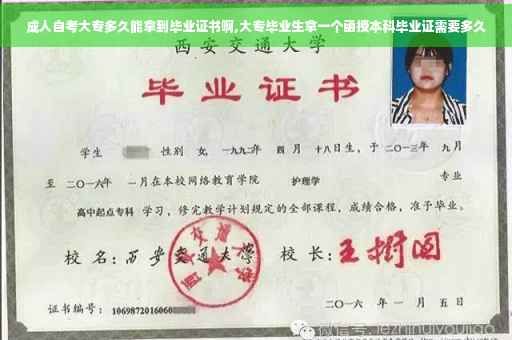 成人自考大专多久能拿到毕业证书啊,大专毕业生拿一个函授本科毕业证需要多久
西安交通大学
毕业证书
学生 性别 女, 一九九二年 四月 十八日生, 于 二〇一三年 九月
至 二〇一六年 一月在本校网络教育学院 护理学 专业
高中起点专科 学习, 修完教学计划规定的全部课程, 成绩合格, 准予毕业。
校名: 西安交通大学 校长: 王树国
西安交通大学
证书编号: 1069872016060
二〇一六年 一月 五日
微信号: jezhinuiyoujiao